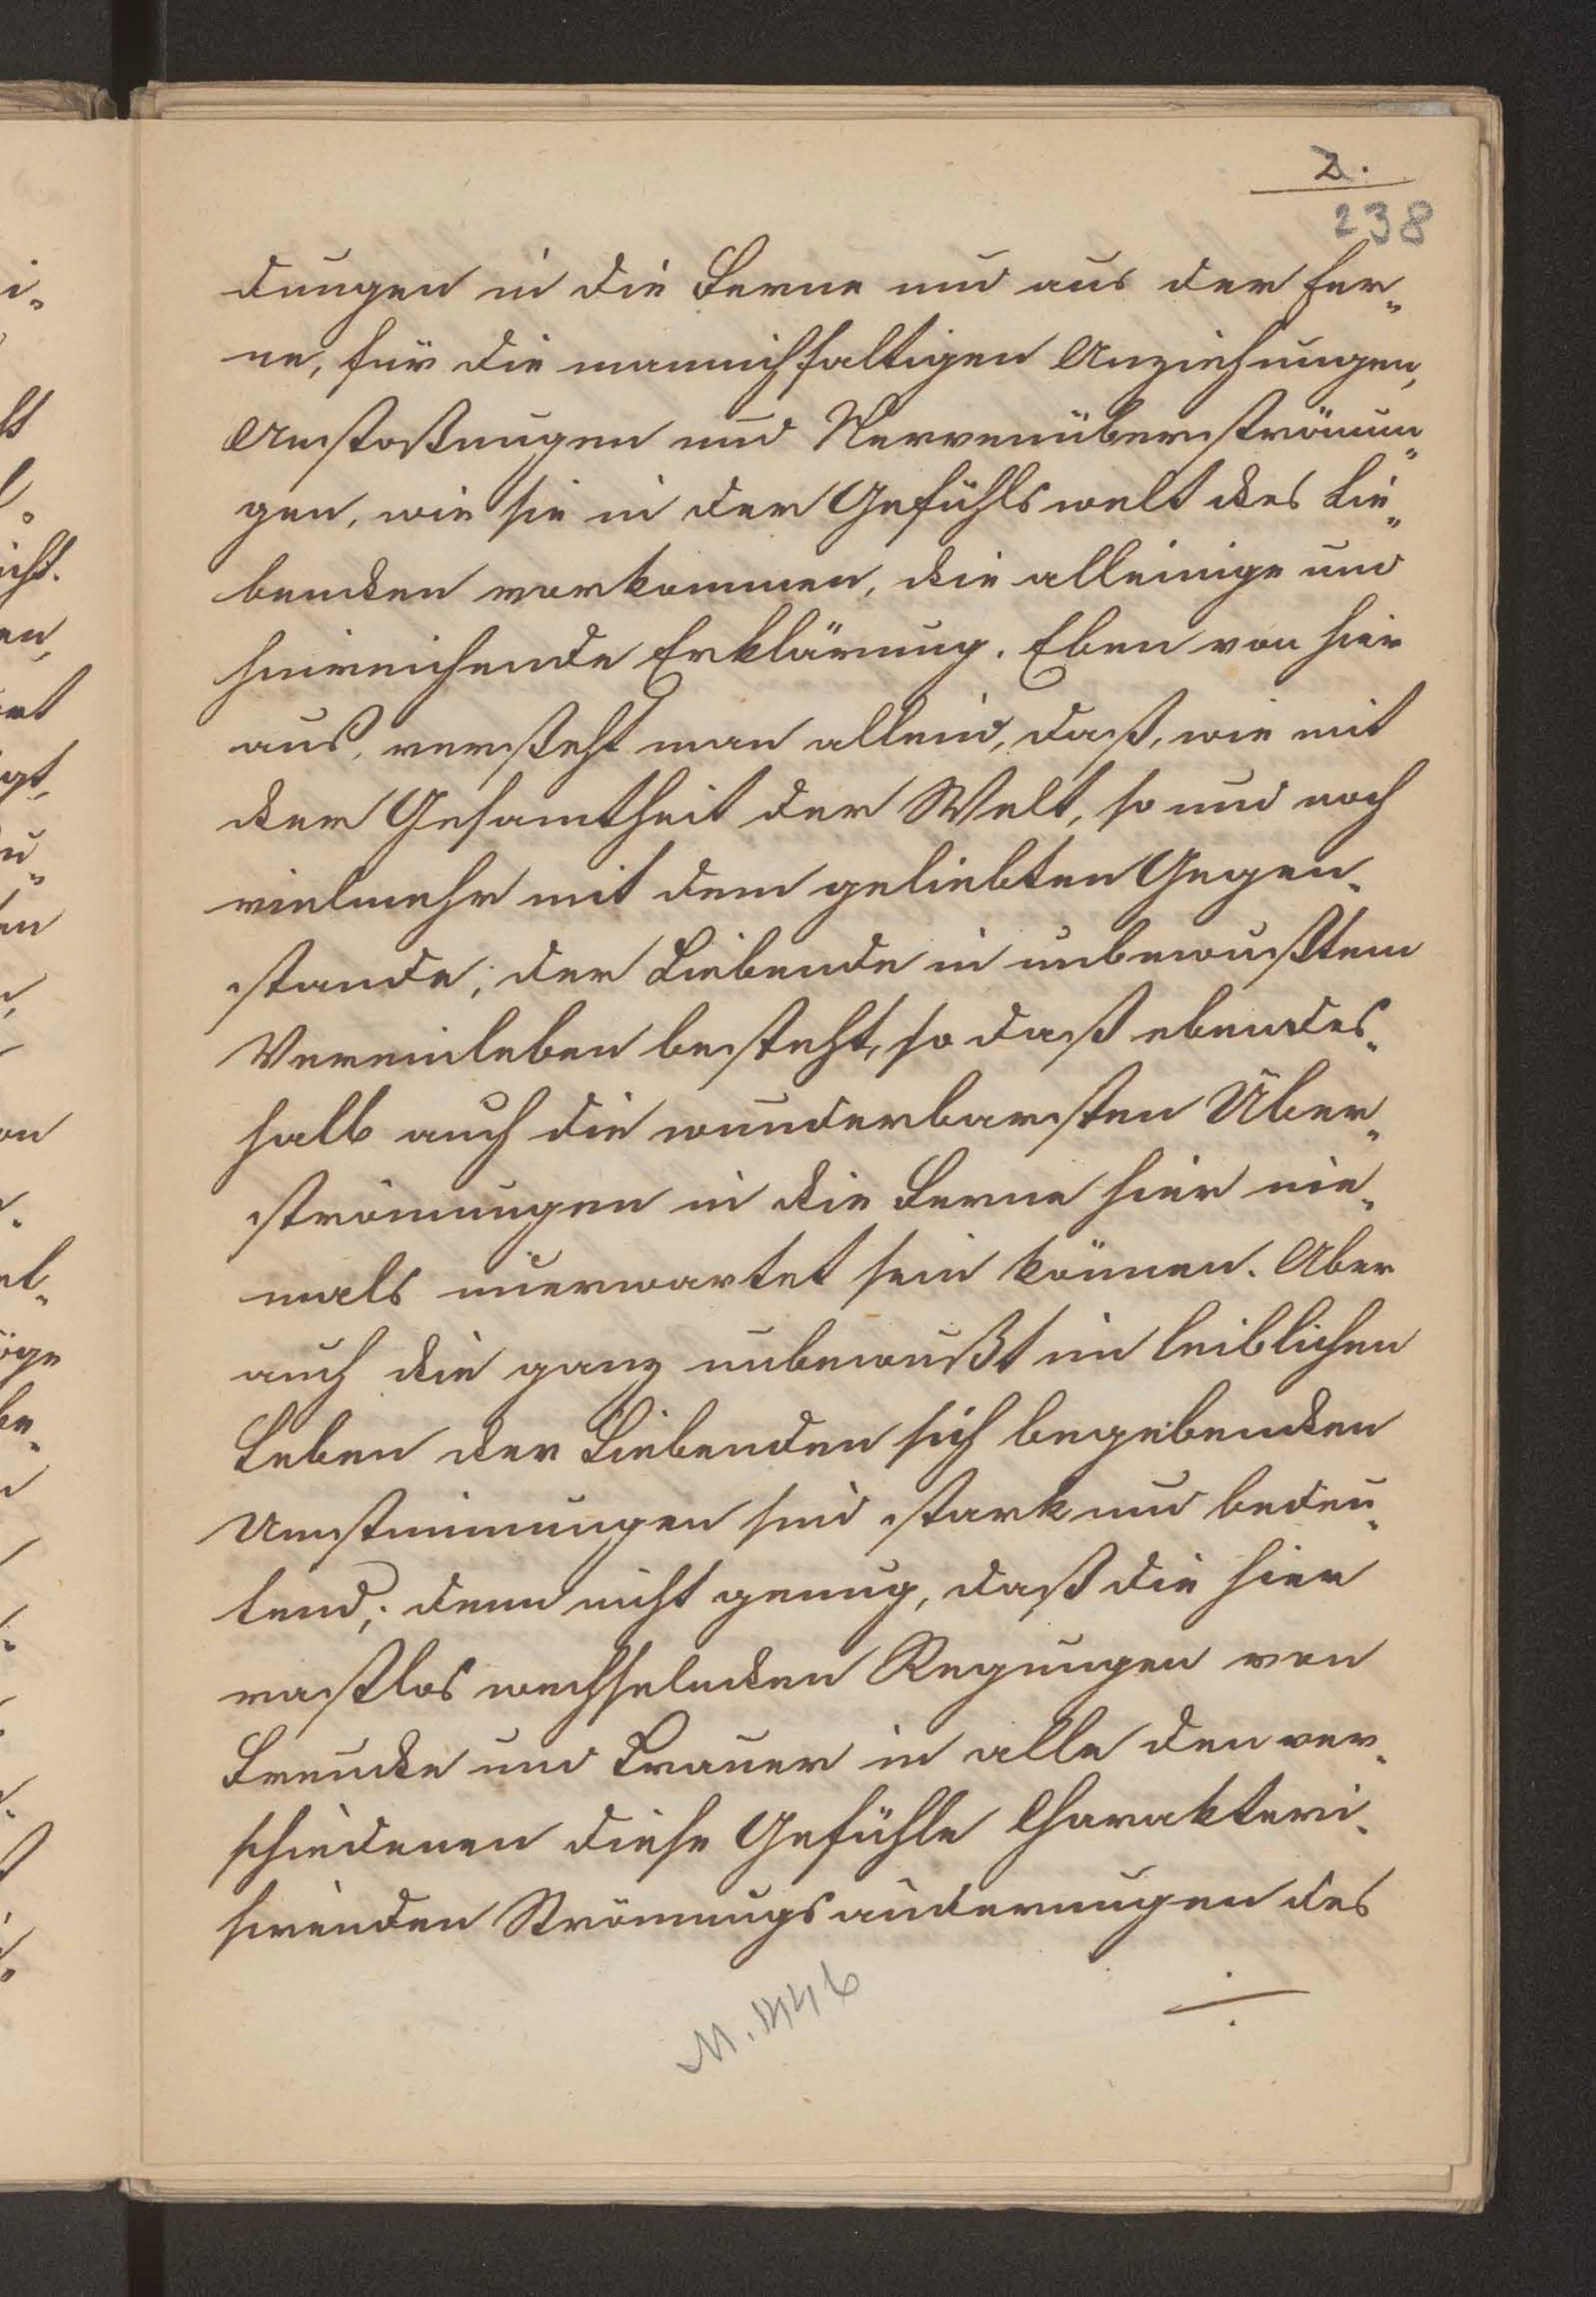 2.
238
dungen in die Ferne und aus der Fer„
ne, für die mannichfaltigen Anziehungen,
Abstoßungen und Nervenüberströmun„
gen, wie sie in der Gefühlswelt des Lie„
benden vorkommen, die alleinige und
hinreichende Erklärung. Eben von hier
aus, versteht man allein, daß, wie mit
der Gesamtheit der Welt, so und noch
vielmehr mit dem geliebten Gegen„
stande, der Liebende in unbewußtem
Vereinleben besteht, so daß ebendes„
halb auch die wunderbarsten Über„
strömungen in die Ferne hier nie„
mals unerwartet sein können. Aber
auch die ganz unbewußt im leiblichen
Leben der Liebenden sich begebenden
Umstimmungen sind stark und bedeu„
tend; denn nicht genug, daß die hier
rastlos wechselnden Regungen von
Freude und Trauer in alle den ver„
schiedenen diese Gefühle Charakteri„
sirenden Strömungsänderungen des